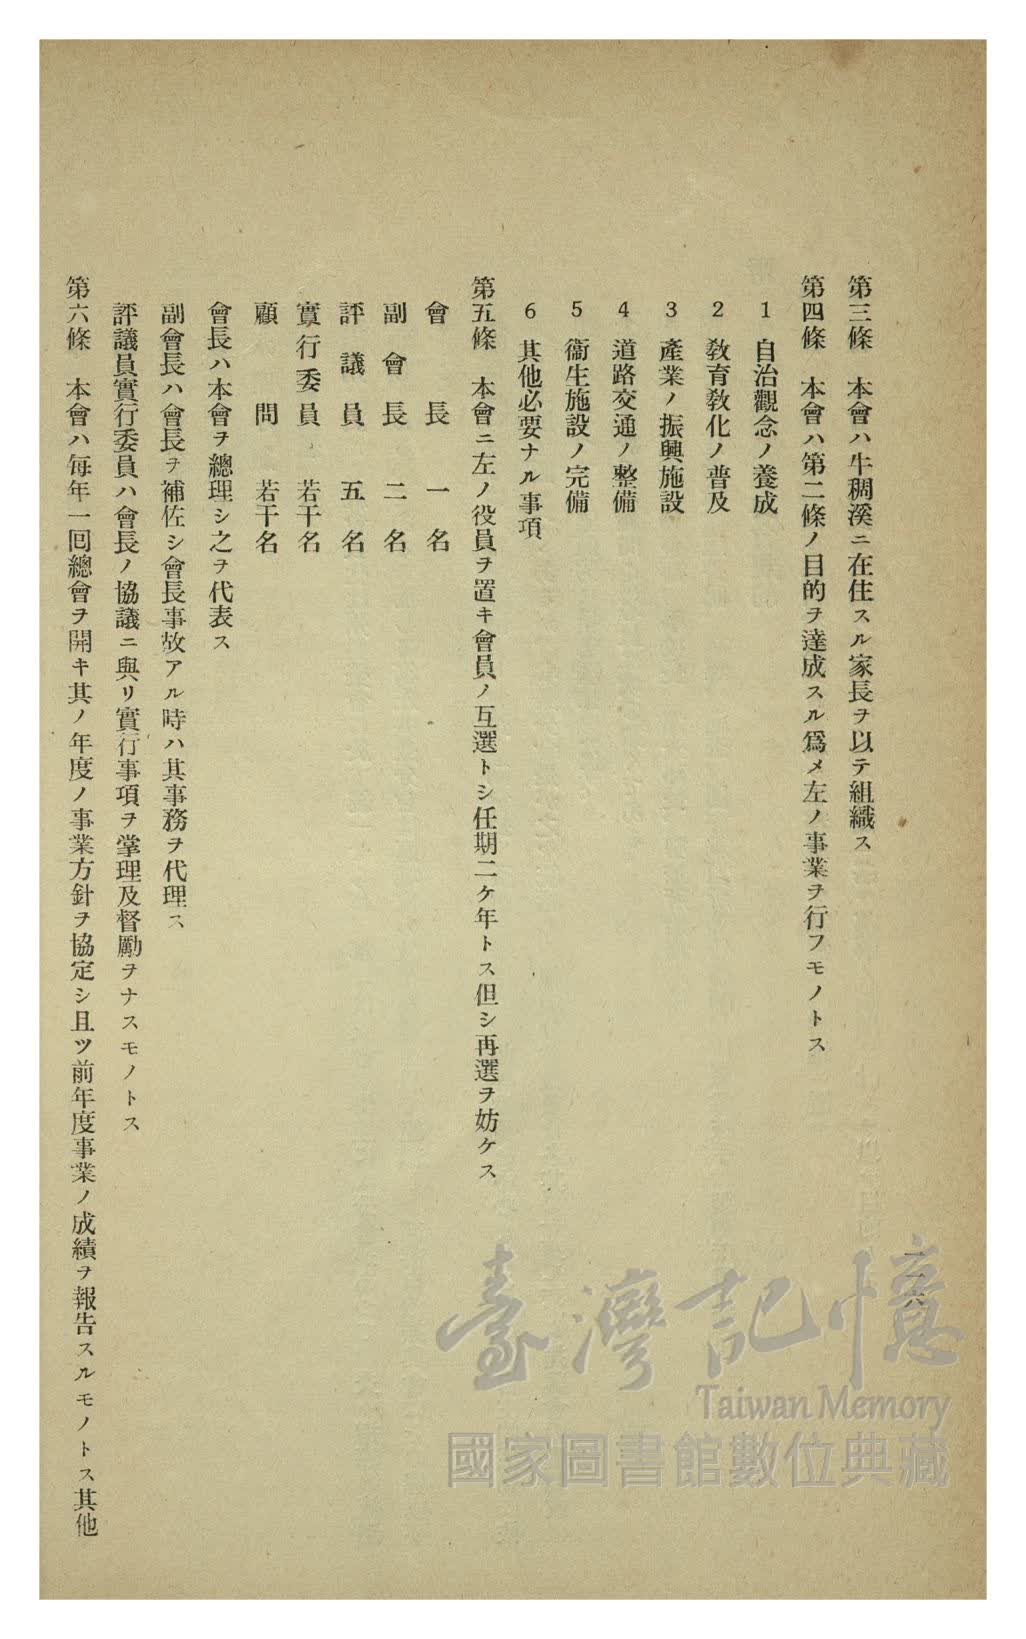 第三條　本會ハ牛稠溪ニ在住スル家長ヲ以テ組織ス
第四條　本會ハ第二條ノ目的ヲ達成スル爲メ左ノ事業ヲ行フモノトス
1　自治觀念ノ養成
2　敎育敎化ノ普及
3　產業ノ振興施設
4　道路交通ノ整備
5　衞生施設ノ完備
6　其他必要ナル事項
第五條　本會ニ左ノ役員ヲ置キ會員ノ互選トシ任期二ケ年トス但シ再選ヲ妨ケス
會長　一名
副會長　二名
評議員　五名
實行委員　若干名
顧問　若干名
會長ハ本會ヲ總理シ之ヲ代表ス
副會長ハ會長ヲ補佐シ會長事故アル時ハ其事務ヲ代理ス
評議員實行委員ハ會長ノ協議ニ與リ實行事項ヲ掌理及督勵ヲナスモノトス
第六條　本會ハ每年一回總會ヲ開キ其ノ年度ノ事業方針ヲ協定シ且ツ前年度事業ノ成績ヲ報告スルモノトス其他
臺灣記憶
Taiwan Memory
國家圖書館數位典藏